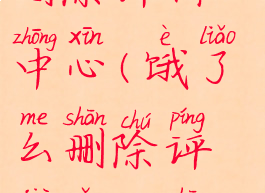 zhōng xīn è liǎo
中心(饿了
me shān chú píng
么删除评